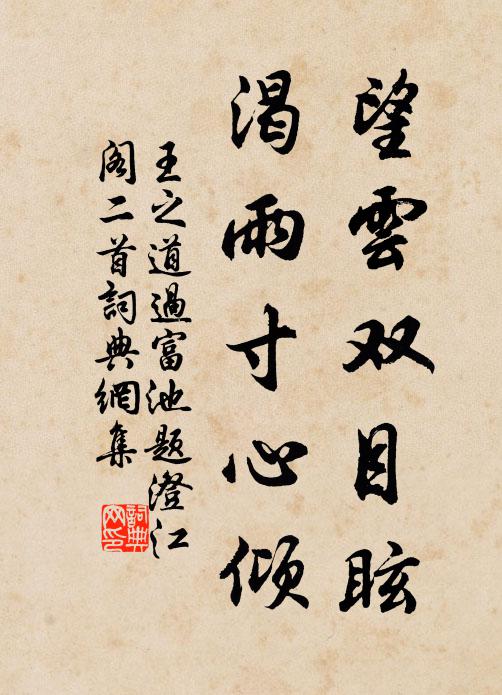 望雲双目眩
渴雨寸心倾
王之道過富池题澄江
阁二首詞典網集
詞典网印